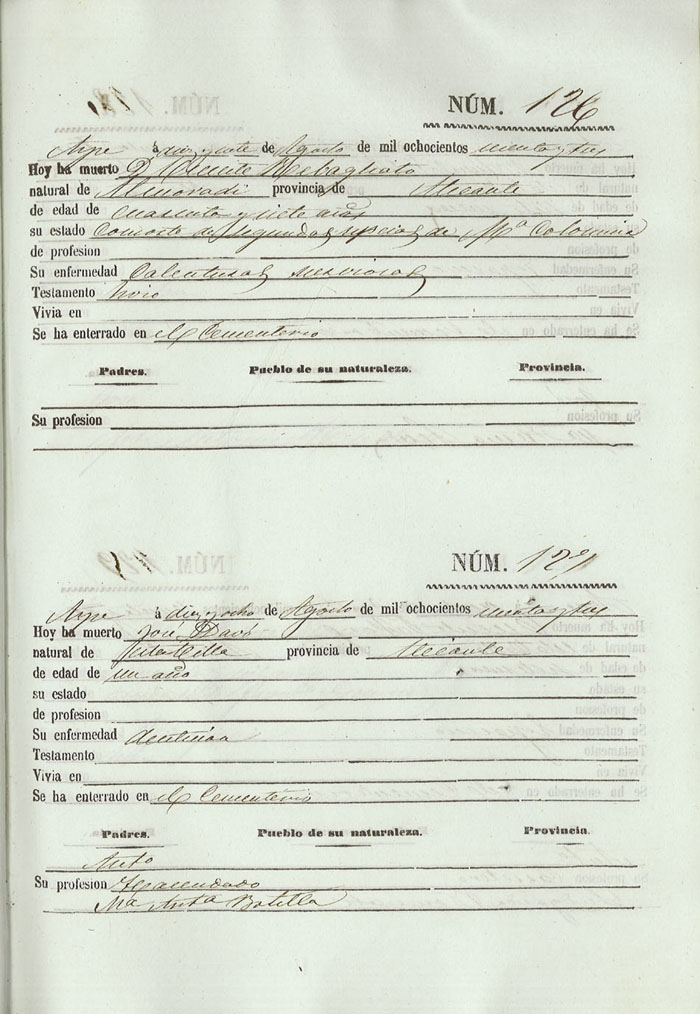 NÚM. 126
Aspe á diez y siete de Agosto de mil ochocientos
Hoy ha muerto D. Vicente Rebagliato
natural de Almoradi provincia de Alicante
de edad de cuarenta y siete años
su estado Consorte de segundas nupcias de Mª Colomina
de profesion
Su enfermedad Calenturas nerviosas
Testamento hizo
Vivia en
Se ha enterrado en el Cementerio
Padres. Pueblo de su naturaleza. Provincia.
Su profesion
NÚM. 127
Aspe á diez y ocho de Agosto de mil ochocientos
Hoy ha muerto José
natural de esta Villa provincia de Alicante
de edad de un año
su estado
de profesion
Su enfermedad
Testamento
Vivia en
Se ha enterrado en el Cementerio
Padres. Pueblo de su naturaleza. Provincia.
Anto
Su profesion Hacendado
Mª Antª Botella